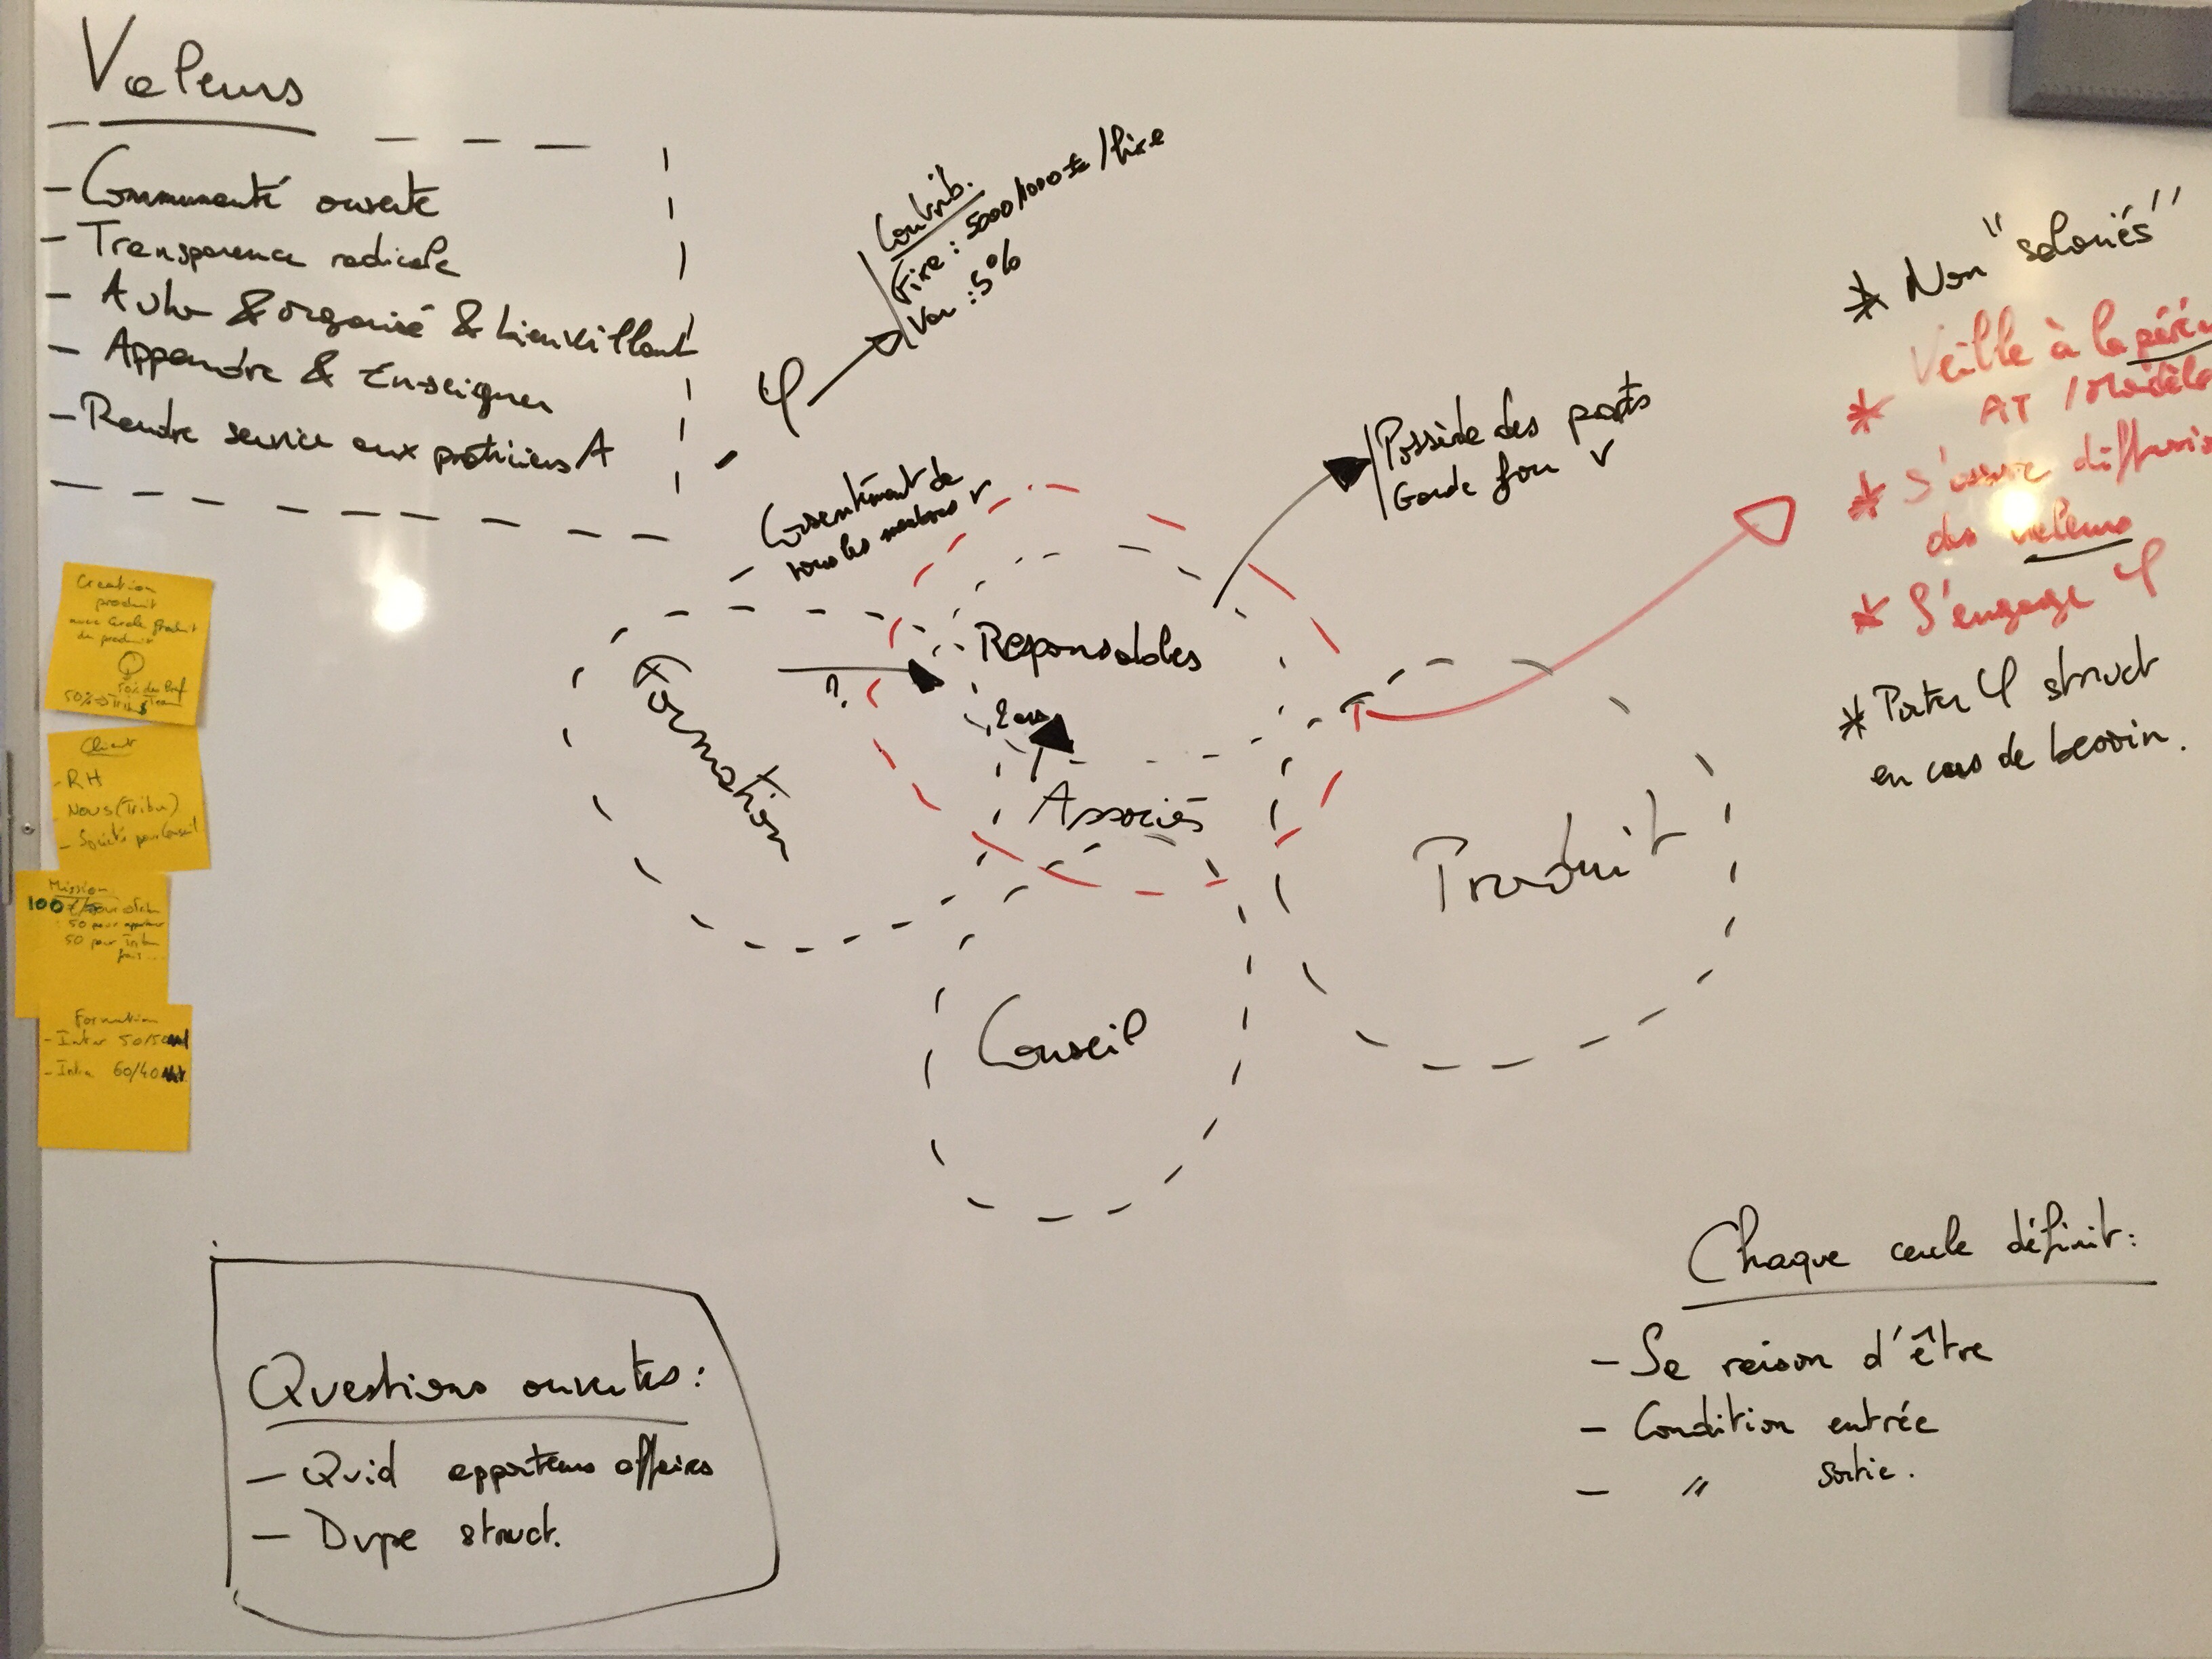 Valeurs
- Communauté ouverte
- Transparence radicale
- Auto & organisé & bienveillant
- Apprendre & Enseigner
- Rendre service aux praticiens A
Contrib.
Fixe : 5000/1000 /fixe
Var : 5%
Consentement de
tous les membres
Possède des parts
Garde fou
Responsables
?
2 ans
Associés
Formation
Produit
Conseil
* Non "salariés"
* Veille à la
AT /
* S'assure
des valeurs
* S'engage
* Porter struct
en cas de besoin.
Creation
produit
avec Cercle Produit
du produit
50%
Client
- RH
- Nous (Tribu)
- Société pour Conseil
Mission
100
50 pour apporteur
50 pour Tribu
frais...
Formation
- Inter 50/50
- Intra 60/40
Questions ouvertes :
- Quid apporteurs affaires
- Dvpe struct.
Chaque cercle définit :
- Sa raison d'être
- Condition entrée
- " sortie.